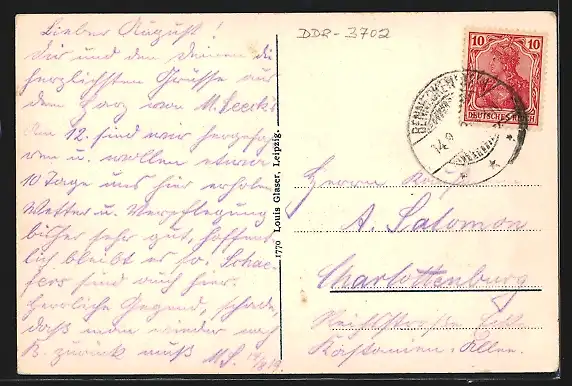 DDR-3702
Lieber August!
Dir und den Deinen die
herzlichsten Grüsse aus
dem Harz von M. Seeck.
Am 12. sind wir hergefah
ren u. wollen etwa
10 Tage uns hier erholen
Wetter u. Verpflegung
bisher sehr gut, hoffent
lich bleibt es so. Schae
fers sind auch hier.
Herrliche Gegend, schade,
daß man wieder nach
B. zurück muß M.S.
1770 Louis Glaser, Leipzig.
10 10
DEUTSCHES REICH
Herrn
A. Salomon
Charlottenburg
Kastanien-Allee.